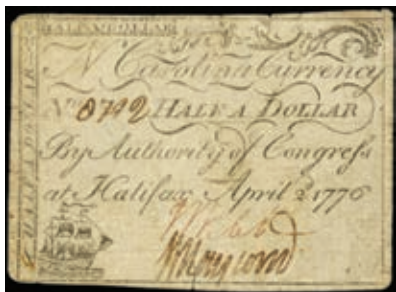 HALF A DOLLAR
N Carolina Currency
No 8792 HALF A DOLLAR
By Authority of Congress
at Halifax April 2 1776